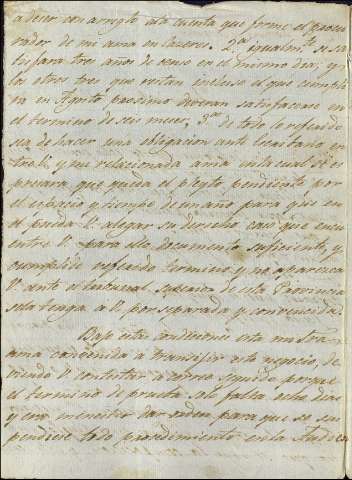 a decir con arreglo ala cuenta que forme el procu
rador de mi ama en Caceres. 2.ª igualm.te se sa
tisfara tres años de censo en el mismo dia; y
los otros tres que restan incluso el que cumpli
ra en Agosto procsimo deveran satisfacerse en
el termino de seis meses, 3.ª de todo lo referido
sea de hacer una obligacion ante Escribano en
tre V. y mi relacionada ama en la cual se es
presara que queda el Pleyto pendiente por
el espacio y tiempo de un año para que en
el pueda V. alegar su derecho caso que encu
entre V. para ello documento suficiente, y
cumplido referido termino y no aparezca
V. ante el tribunal superior de esta Provincia
se le tenga a V. por separado y convencido
Bajo estas condiciones esta nuestra
ama convenida a transigir este negocio, de
viendo V. contestar a correo seguido porque
el termino de prueba solo falta ocho dias
y era menester dar orden para que se sus
pendiese todo procedimiento en la Audi